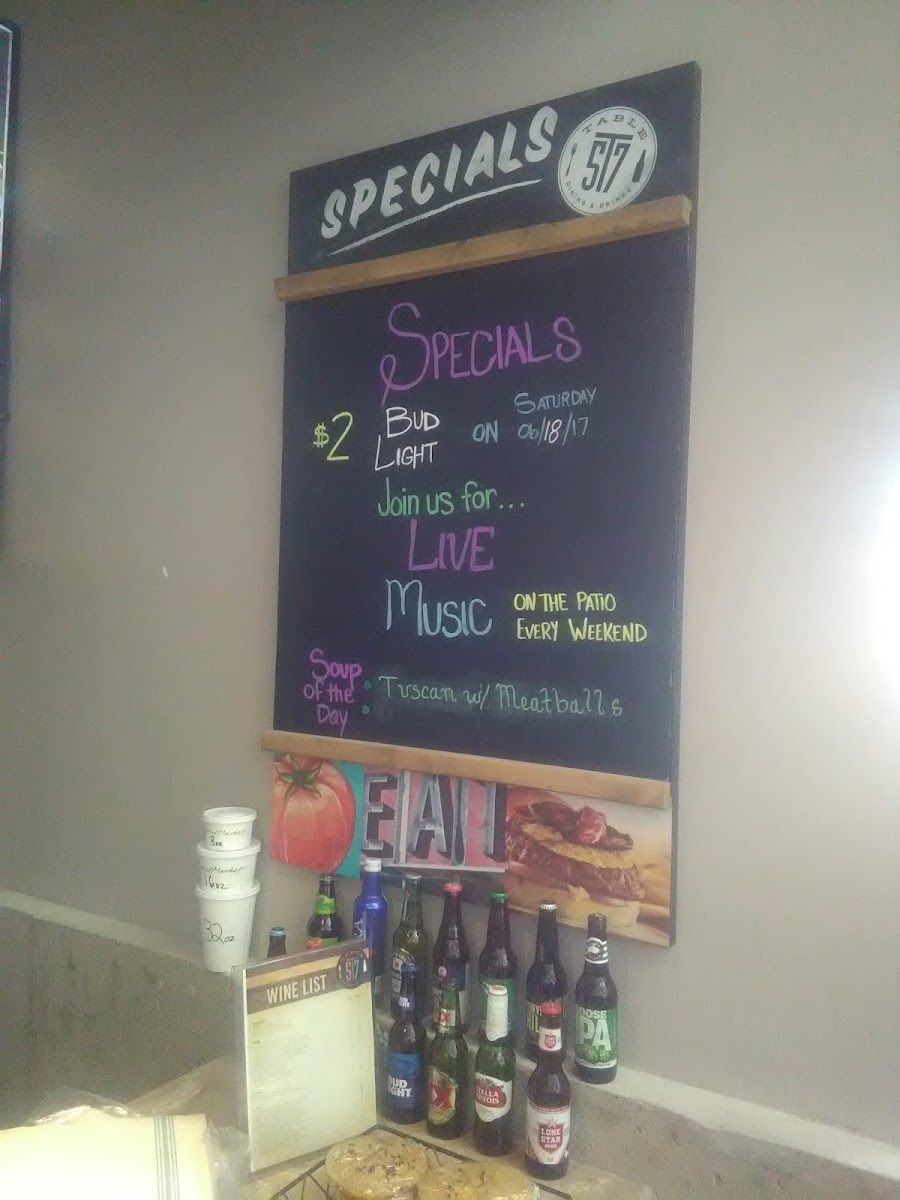 SPECIALS
TABLE
ST7
DINING & DRINKS
SPECIALS
$2 BUD LIGHT ON SATURDAY 06/18/17
Join us for...
LIVE
MUSIC ON THE PATIO
EVERY WEEKEND
Soup of the Day: Tuscan w/ Meatballs
EAT
8oz
16oz
32oz
WINE LIST
BUD LIGHT
STELLA ARTOIS
LONE STAR
GOOSE
IPA